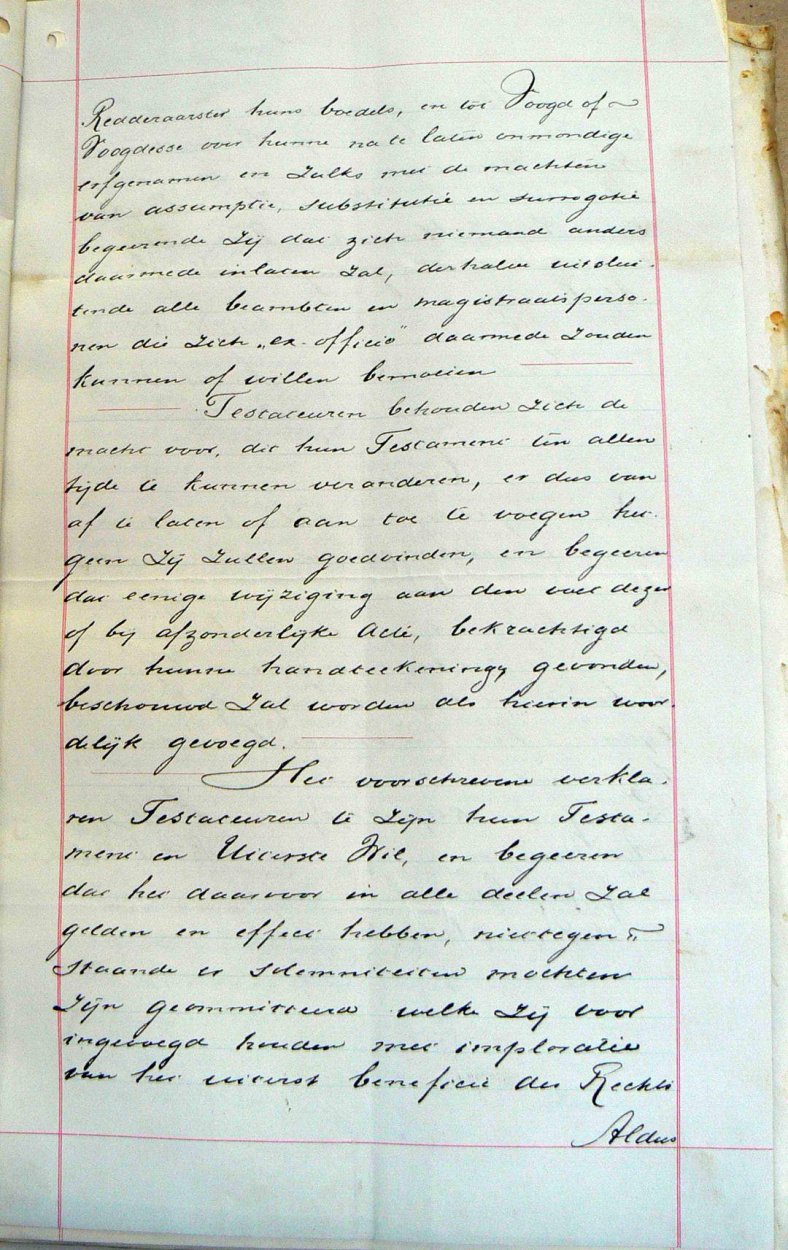 Redderaarster huns boedels, en tot Voogd of
Voogdesse over hunne na te laten onmondige
erfgenamen en zulks met de machten
van assumptie, substitutie en surrogatie
begeerende Zij dat zich niemand anders
daarmede inlaten zal, derhalve uitslui-
tende alle beambten en magistraatsperso-
nen die zich „ex officio" daarmede zouden
kunnen of willen bemoeien
Testateuren behouden zich de
macht voor, dit hun Testament ten allen
tijde te kunnen veranderen, er dus van
af te laten of aan toe te voegen het-
geen Zij zullen goedvinden, en begeeren
dat eenige wijziging aan den voet dezer
of bij afzonderlijke Acte, bekrachtigd
door hunne handteekening, gevonden,
beschouwd zal worden als hierin woor-
delijk gevoegd.
Het voorschrevene verkla-
ren Testateuren te zijn hun Testa-
ment en Uiterste Wil, en begeeren
dat het daarvoor in alle deelen zal
gelden en effect hebben, niettegen-
staande er solemniteiten mochten
zijn geommitteerd welke Zij voor
ingevoegd houden met imploratie
van het uiterst beneficie des Rechts
Aldus